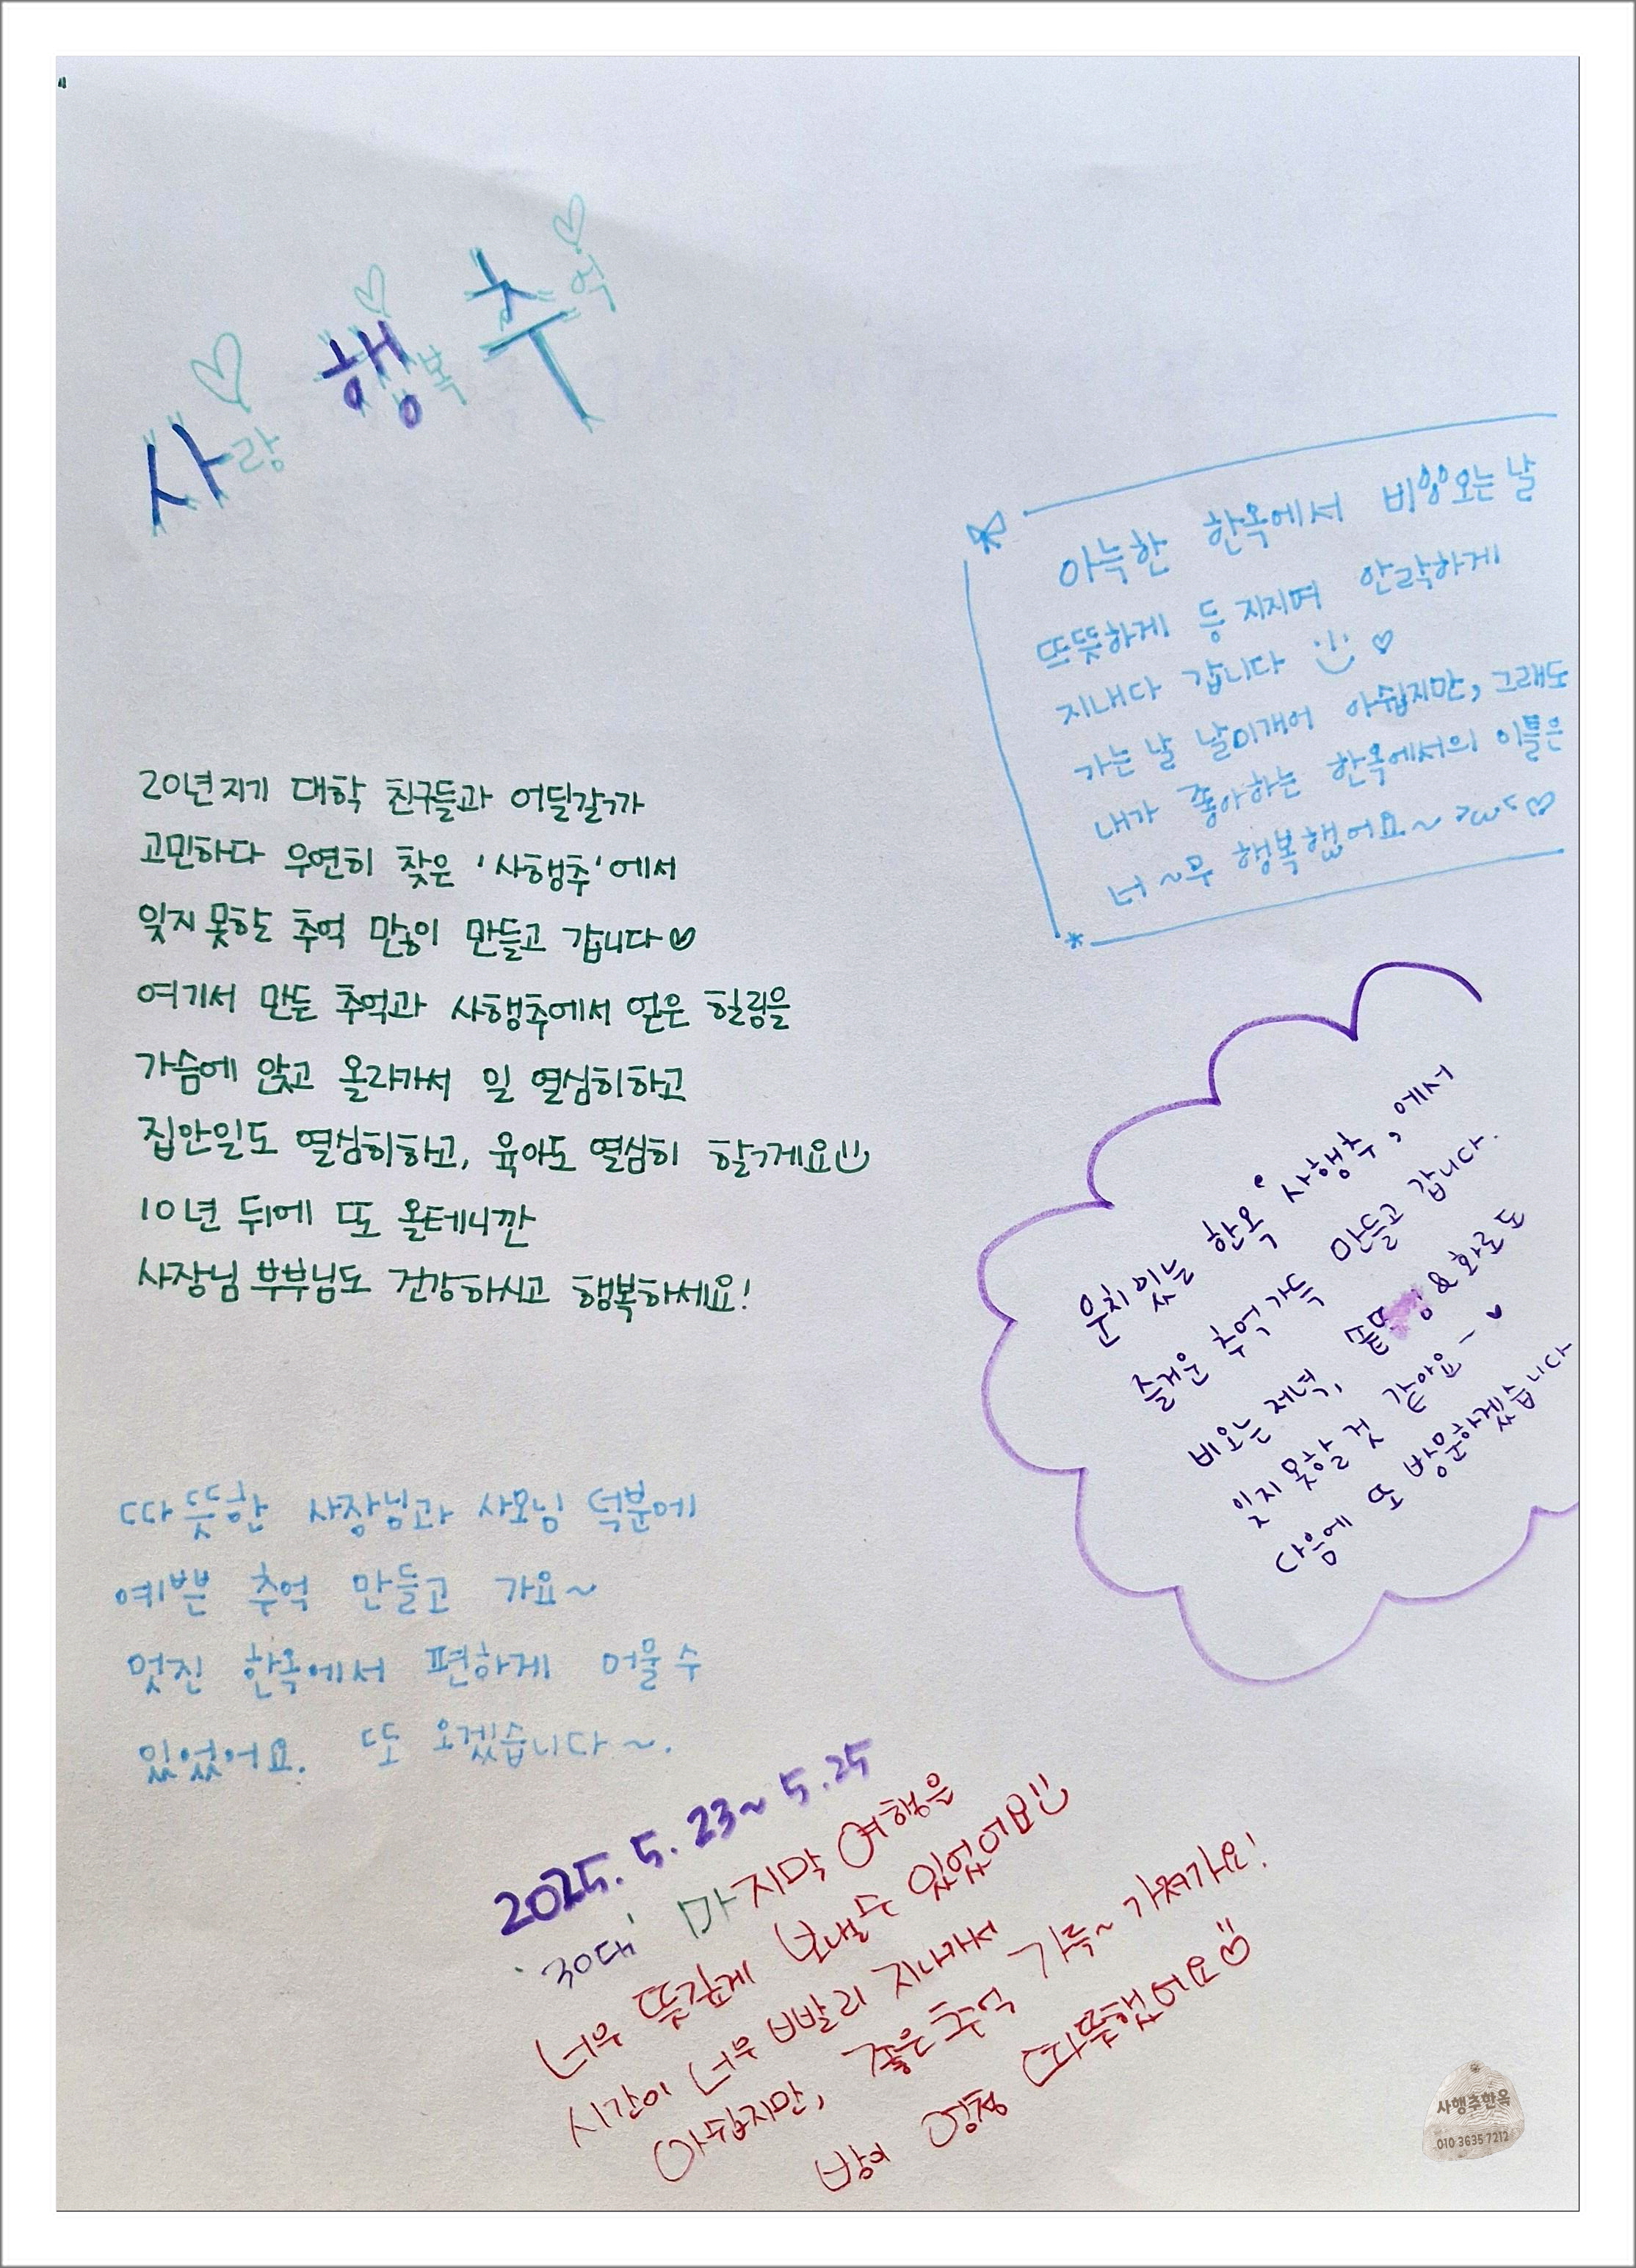 사랑 행복 추억
아늑한 한옥에서 비오는날
뜨뜻하게 등 지지며 안락하게
지내다 갑니다
가는 날 날이개어 아쉽지만, 그래도
내가 좋아하는 한옥에서의 이틀은
너~무 행복했어요~ >ω<♡
20년지기 대학 친구들과 어딜갈가
고민하다 우연히 찾은 '사행추'에서
잊지못한 추억 많이 만들고 갑니다♡
여기서 만든 추억과 사행추에서 얻은 힐링을
가슴에 안고 올라가서 일 열심히하고
집안일도 열심히하고, 육아도 열심히 할게요
10년 뒤에 또 올테니깐
사장님 부부님도 건강하시고 행복하세요!
운치있는 한옥 '사행추'에서
즐거운 추억 가득 만들고 갑니다.
비오는 저녁, &화로도
잊지못할 것 같아요~♥
다음에 또 방문하겠습니다
따뜻한 사장님과 사모님 덕분에
예쁜 추억 만들고 가요~
멋진 한옥에서 편하게 머물 수
있었어요. 또 오겠습니다~.
2025. 5. 23~ 5.25
'30대' 마지막 여행을
너무 뜻깊게 보낼 수 있었어요
시간이 너무 빨리 지나가서
아쉽지만, 좋은 추억 가득~ 가져가요!
방이 엄청 따뜻했어요♡
사행추한옥
010 3635 7212